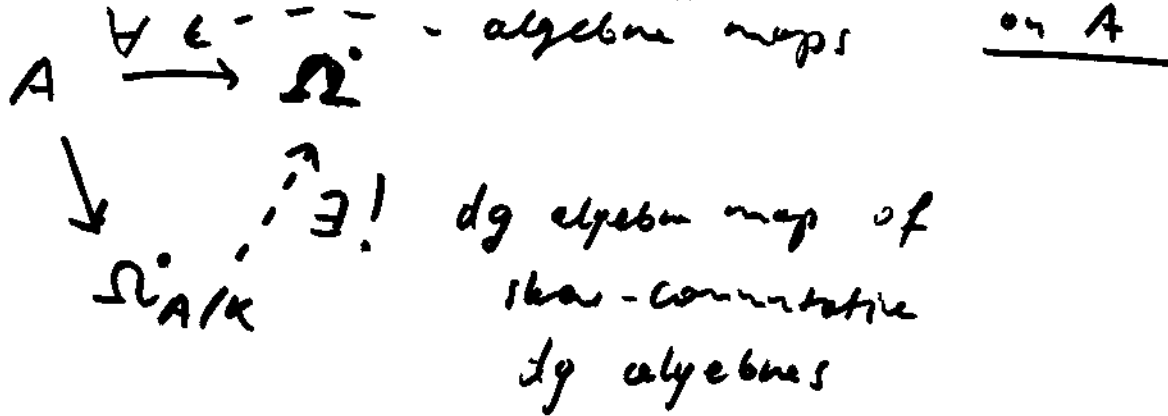 ∀ ϵ - - - - algebra maps on A
A → Ω•
∃! dg algebra map of
Ω•A/K skew-commutative
dg algebras